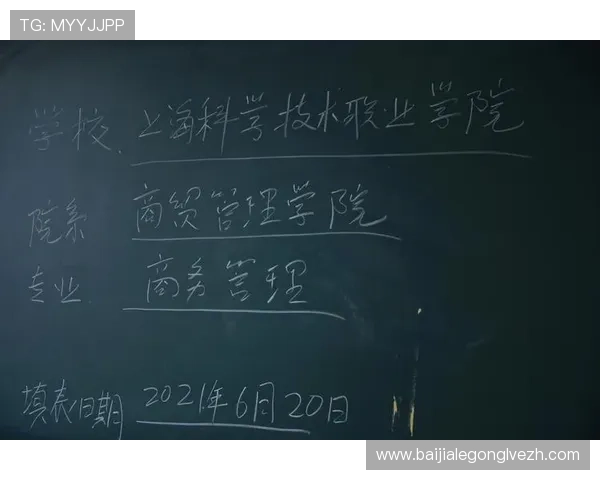 TG: MYYJJPP
学校. 上海科学技术职业学院
院系 商贸管理学院
专业. 商务管理
填表日期 2021年6月20日
www.baijialegonglvezh.com